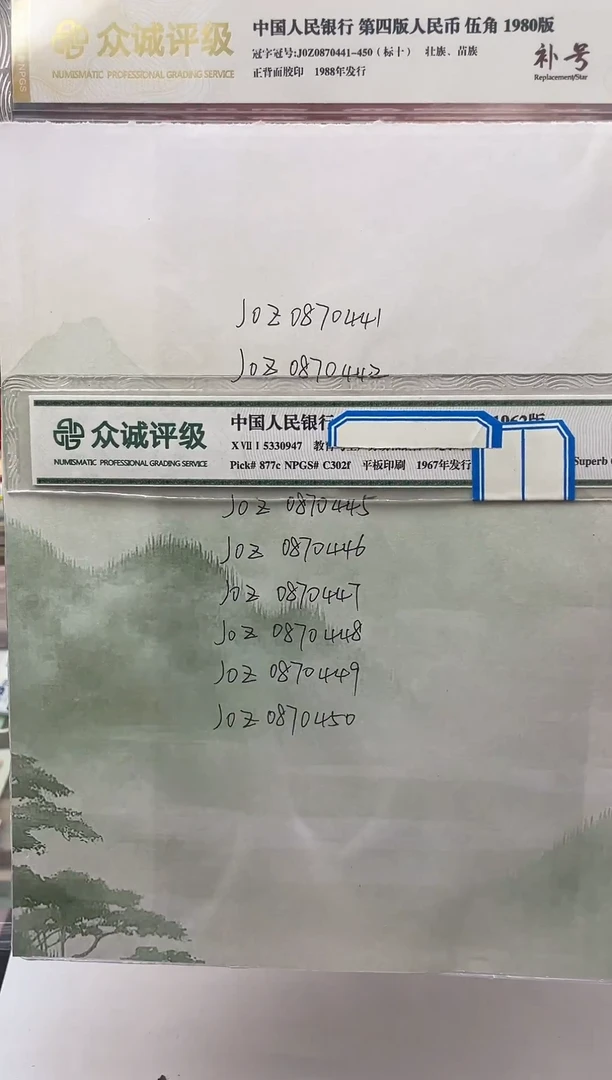 众诚评级
NUMISMATIC PROFESSIONAL GRADING SERVICE
NPGS
中国人民银行 第四版人民币 伍角 1980版
冠字冠号:J0Z0870441-450（标十） 壮族、苗族
正背面胶印 1988年发行
补号
Replacement/Star
J0Z 0870441
J0Z 0870442
众诚评级
NUMISMATIC PROFESSIONAL GRADING SERVICE
中国人民银行
X VII I 5330947
Pick# 877c NPGS# C302f 平板印刷 1967年发行
Superb
J0Z 0870445
J0Z 0870446
J0Z 0870447
J0Z 0870448
J0Z 0870449
J0Z 0870450